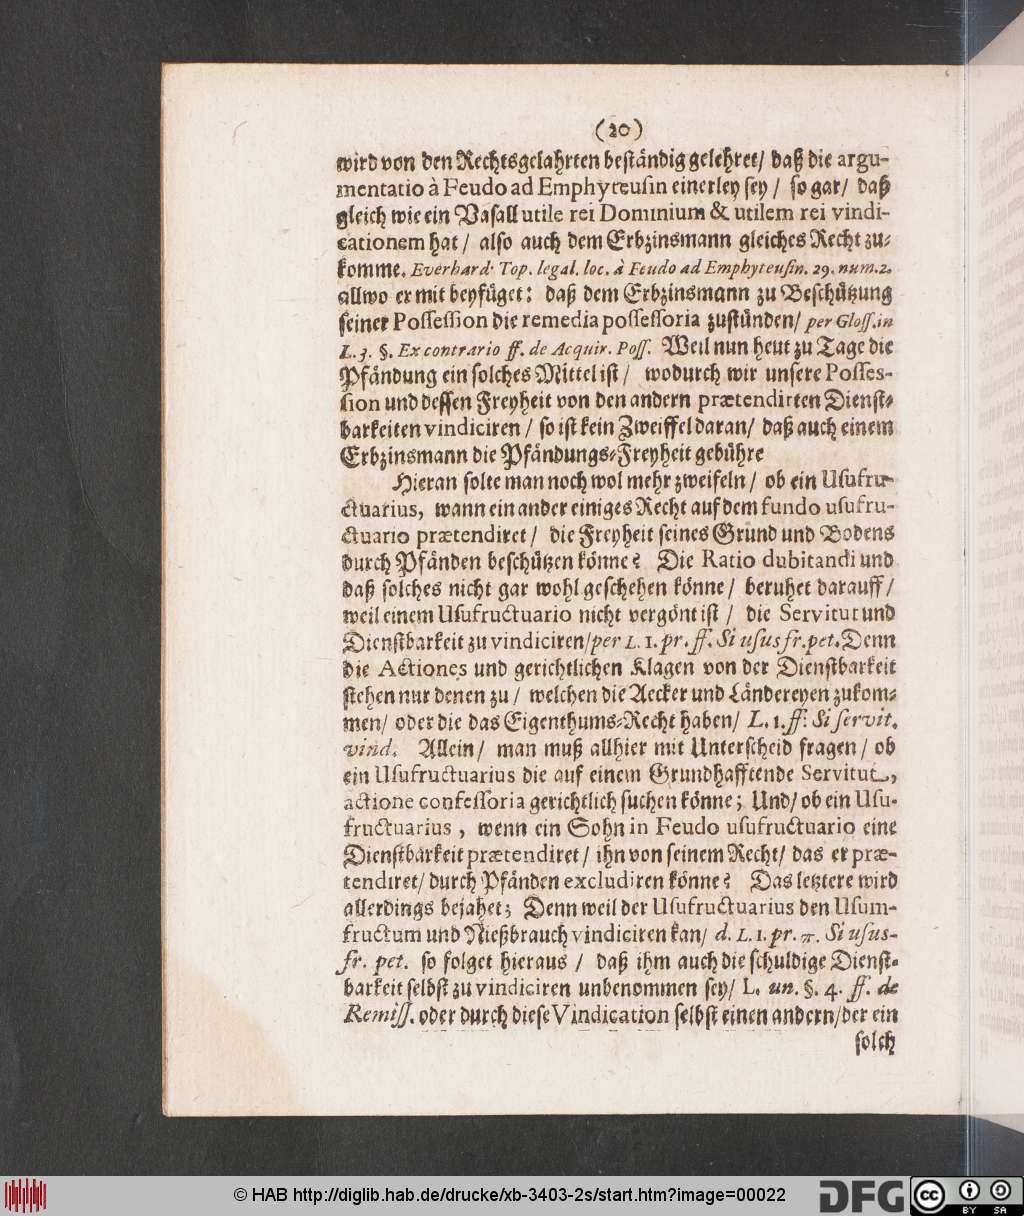 (20)
wird von den Rechtsgelahrten beständig gelehret/ daß die argu-
mentatio à Feudo ad Emphyteusin einerley sey / so gar/ daß
gleich wie ein Vasall utile rei Dominium & utilem rei vindi-
cationem hat / also auch dem Erbzinsmann gleiches Recht zu-
komme. Everhard. Top. legal. loc. à Feudo ad Emphyteusin. 29. num.2.
allwo er mit beyfüget: daß dem Erbzinsmann zu Beschützung
seiner Possession die remedia possessoria zustünden/ per Gloss. in
L. 3. §. Ex contrario ff. de Acquir. Poss. Weil nun heut zu Tage die
Pfändung ein solches Mittel ist / wodurch wir unsere Posses-
sion und dessen Freyheit von den andern prætendirten Dienst-
barkeiten vindiciren / so ist kein Zweiffel daran/ daß auch einem
Erbzinsmann die Pfändungs-Freyheit gebühre
Hieran solte man noch wol mehr zweifeln / ob ein Usufru-
ctuarius, wann ein ander einiges Recht auf dem fundo usufru-
ctuario prætendiret / die Freyheit seines Grund und Bodens
durch Pfänden beschützen könne? Die Ratio dubitandi und
daß solches nicht gar wohl geschehen könne / beruhet darauff /
weil einem Usufructuario nicht vergönt ist / die Servitut und
Dienstbarkeit zu vindiciren/ per L. 1. pr. ff. Si usus fr. pet. Denn
die Actiones und gerichtlichen Klagen von der Dienstbarkeit
stehen nur denen zu / welchen die Aecker und Ländereyen zukom-
men/ oder die das Eigenthums-Recht haben/ L. 1. ff. Si servit.
vind. Allein/ man muß allhier mit Unterscheid fragen / ob
ein Usufructuarius die auf einem Grundhafftende Servitut,
actione confessoria gerichtlich suchen könne; Und/ ob ein Usu-
fructuarius, wenn ein Sohn in Feudo usufructuario eine
Dienstbarkeit prætendiret / ihn von seinem Recht/ das er præ-
tendiret/ durch Pfänden excludiren könne? Das letztere wird
allerdings bejahet; Denn weil der Usufructuarius den Usum-
fructum und Nießbrauch vindiciren kan/ d. L. 1. pr. π. Si usus-
fr. pet. so folget hieraus / daß ihm auch die schuldige Dienst-
barkeit selbst zu vindiciren unbenommen sey/ L. un. §. 4. ff. de
Remiss. oder durch diese Vindication selbst einen andern/ der ein
solch
© HAB http://diglib.hab.de/drucke/xb-3403-2s/start.htm?image=00022
DFG
cc BY SA